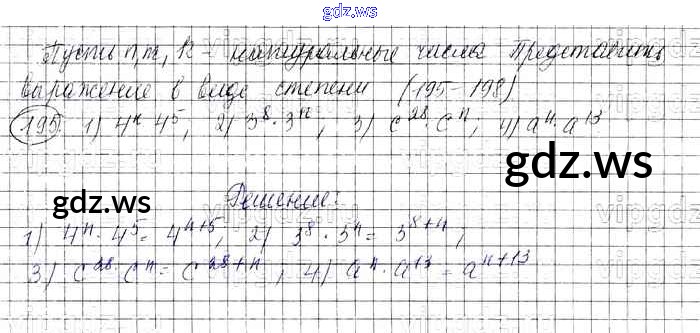 gdz.ws
Пусть n, m, k - натуральные числа Представить
выражение в виде степени (195-198)
195. 1) 4ⁿ 4⁵, 2) 3⁸·3ⁿ; 3) c²⁸·cⁿ; 4) aⁿ·a¹³
gdz.ws
gdz.ws
Решение:
1) 4ⁿ·4⁵= 4ⁿ⁺⁵, 2) 3⁸·3ⁿ= 3⁸⁺ⁿ;
3) c²⁸·cⁿ= c²⁸⁺ⁿ, 4) aⁿ·a¹³=aⁿ⁺¹³
gdz.ws